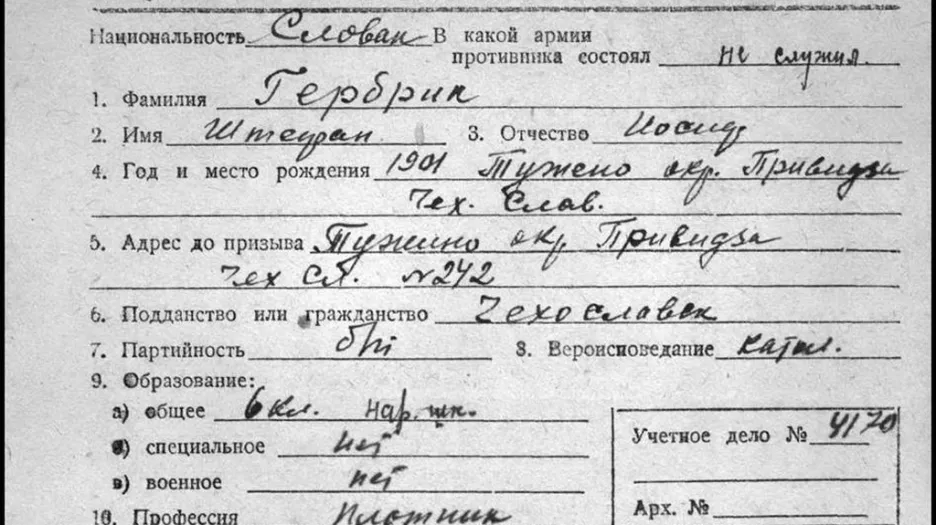 Национальность Словак В какой армии
противника состоял не служил.
1. Фамилия Гербрик
2. Имя Штефан 3. Отчество Иосиф
4. Год и место рождения 1901 Тужено окр. Привидза
Чех. Слав.
5. Адрес до призыва Тужино окр Привидза
Чех Сл. №242
6. Подданство или гражданство Чехословацк
7. Партийность б/п 8. Вероисповедание катол.
9. Образование:
а) общее 6 кл. нар. шк.
б) специальное нет
Учетное дело № 4170
в) военное нет
Арх. №
10. Профессия Плотник